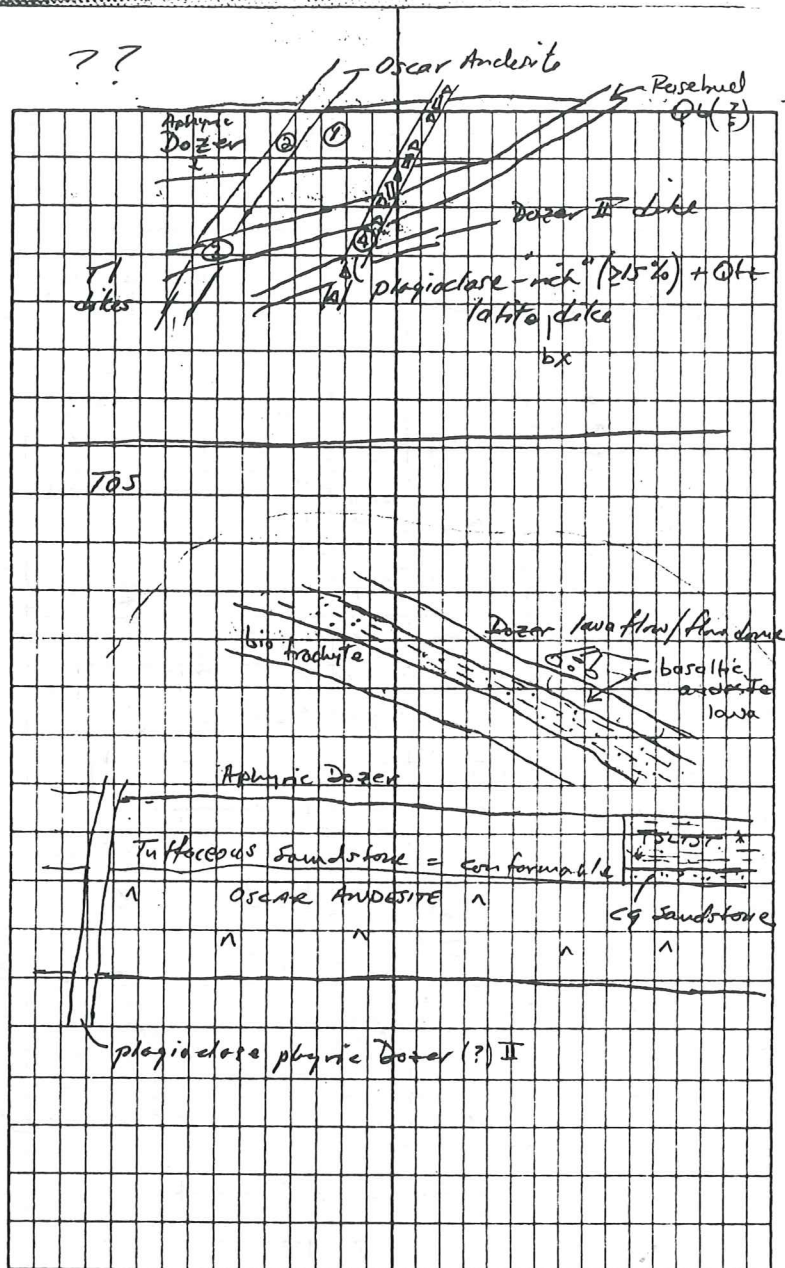 ??
Oscar Andesite
Rosebud
Qtz(?)
Aphyric
Dozer
I
②
①
②
④
Dozer II dike
plagioclase-"rich" (≥15%) + Qtz
latite dike
bx
dikes
TOS
Dozer lava flow/flow dome
bio trachyte
basaltic
andesite
lava
Aphyric Dozer
Tuffaceous Sandstone = conformable
OSCAR ANDESITE
cg sandstone
plagioclase phyric Dozer (?) II